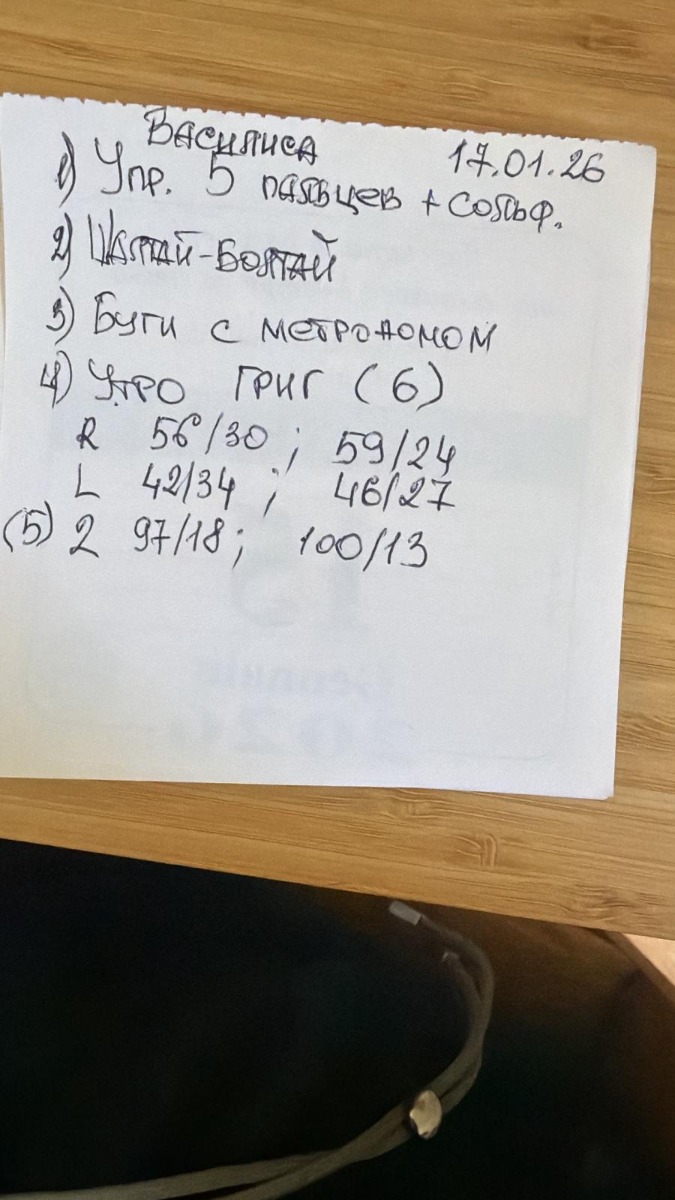 Василиса 17.01.26
1) Упр. 5 пальцев + сольф.
2) Шалтай-Болтай
3) Буги с метрономом
4) Утро Григ (6)
R 56/30 ; 59/24
L 42/34 ; 46/27
(5) 2 97/18 ; 100/13